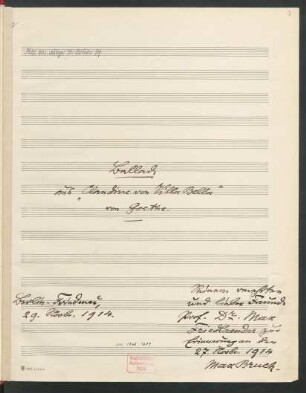 Ballade
aus "Claudine von Villa Bella"
von Goethe.
Berlin-Friedenau,
29. Novb. 1914.
Seinem verehrten
und lieben Freunde
Prof. Dr. Max
Friedlaender zur
Erinnerung an den
27. Novb. 1914
Max Bruch.